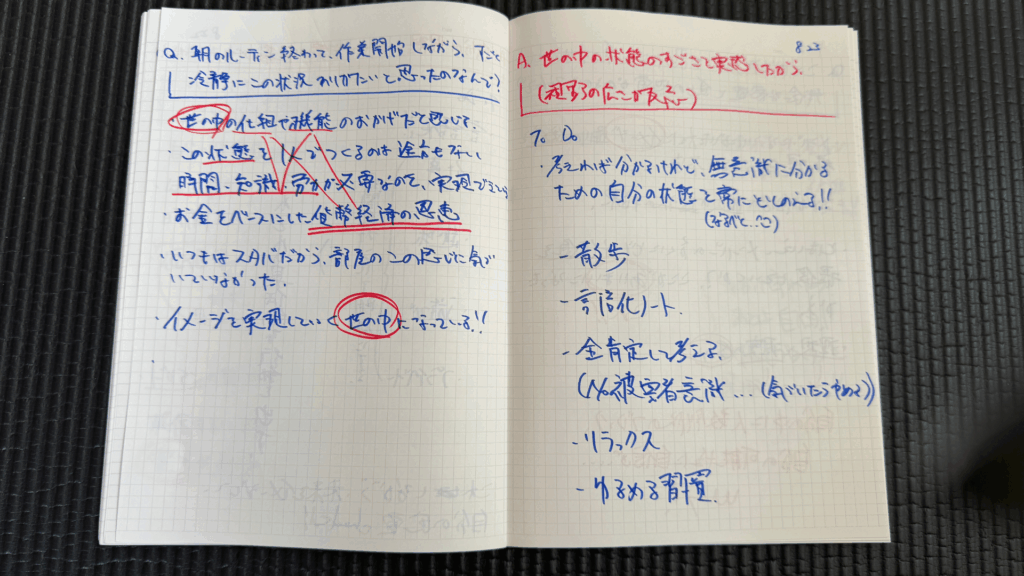 Q. 朝のルーティン終わって、作業開始しながら、すごと
冷静にこの状況 ありがたいと思ったのなんで?
世の中の仕組や機能のおかげだと思いて、
・この状態を1人でつくるのは途方もない
時間、知識、労力が必要なので、実現できない
・お金をベースにした貨幣経済の恩恵
・いつもはスタバだから、部屋のこの感じに気づ
いていなかった.
・イメージを実現していく世の中になっている!!
8.23
A. 世の中の状態のすごさを実感したから、
To Do
・考えれば分かるけれど、無意識に分かる
ための自分の状態を常にととのえる!!
(なるべく…)
- 散歩
- 言語化ノート.
- 全肯定して考える.
(No被害者意識… (気づいたらやめる))
- リラックス
- ゆるめる習慣.